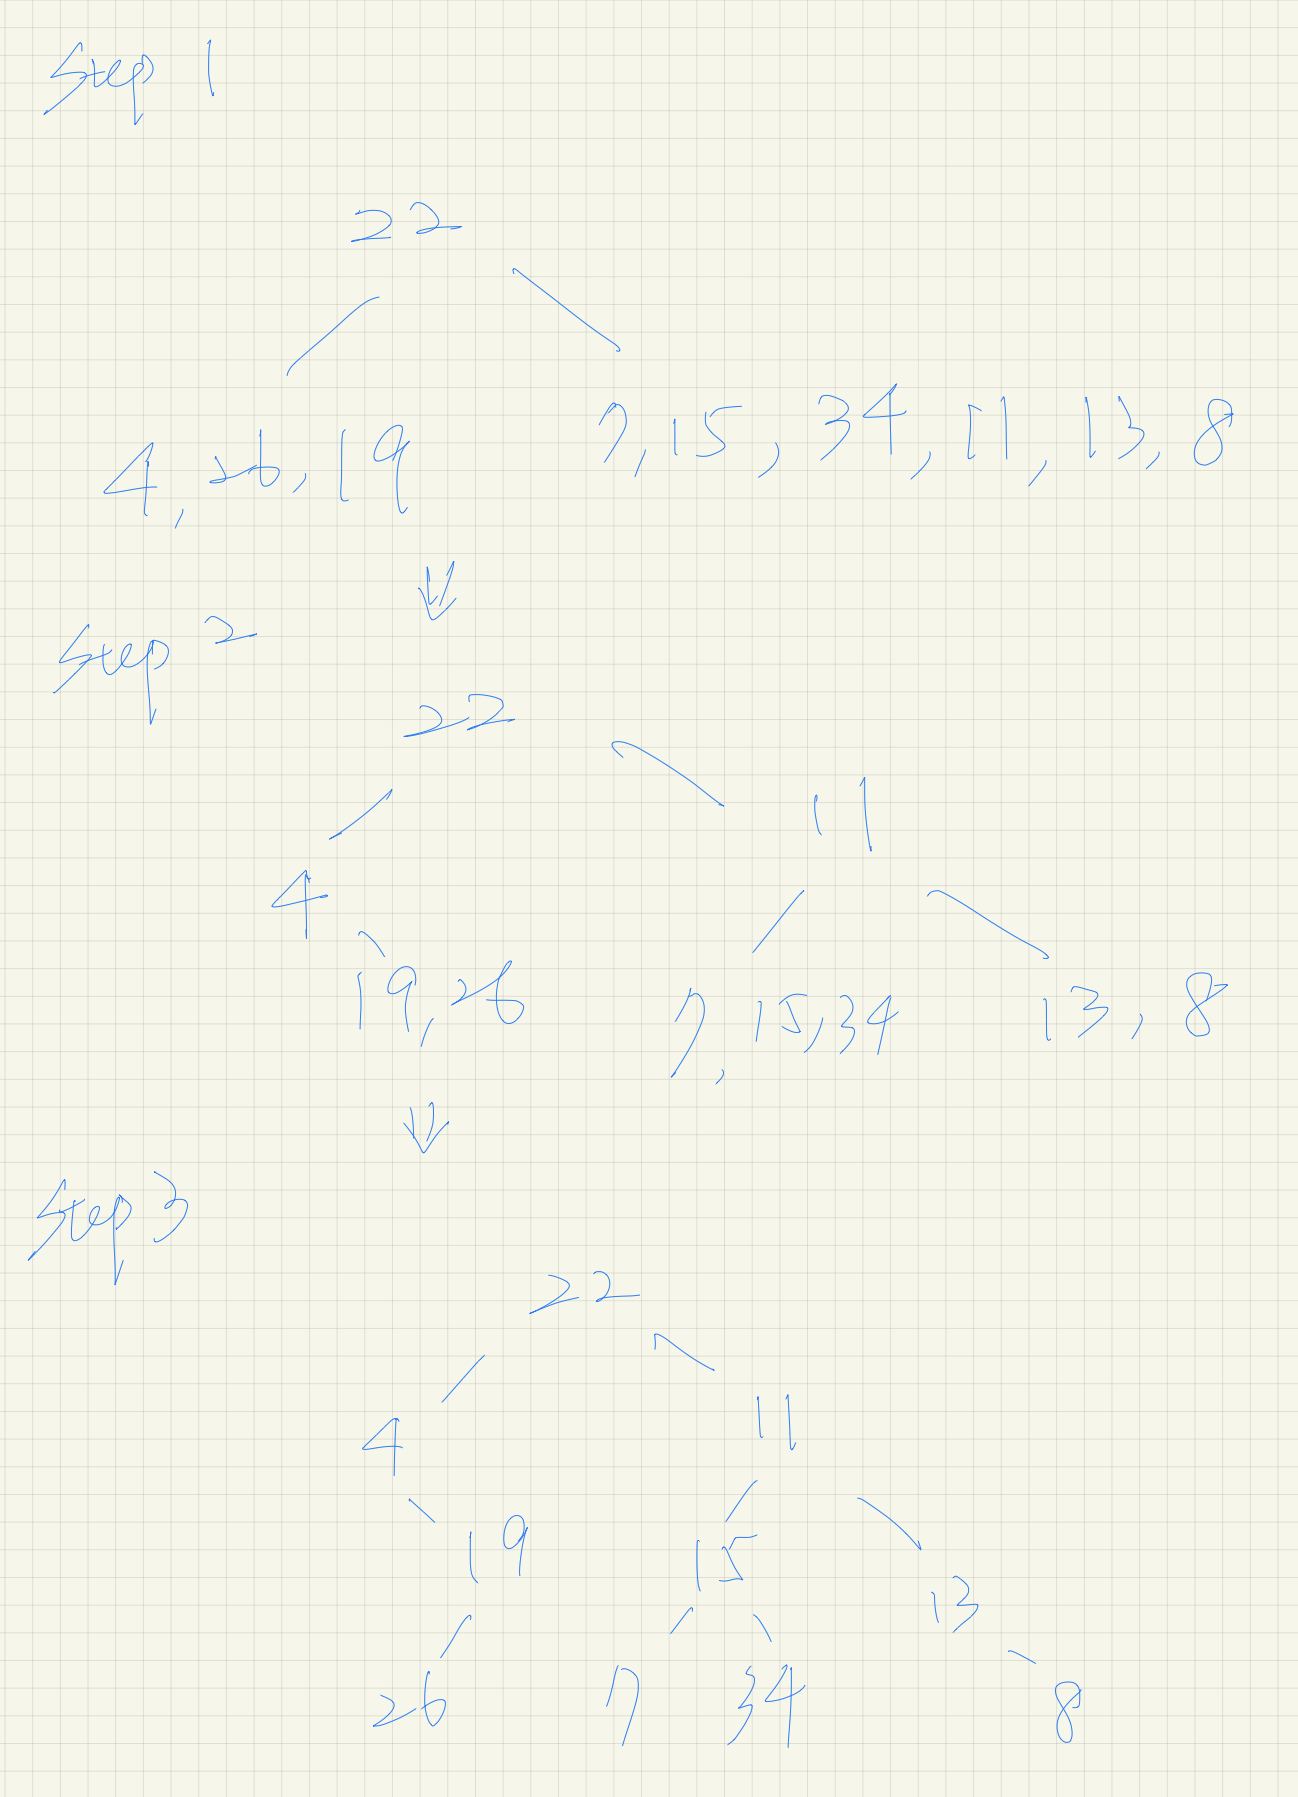 Step 1
22
4, 26, 19
7, 15, 34, 11, 13, 8
Step 2
22
4
11
19, 26
7, 15, 34
13, 8
Step 3
22
4
11
19
15
13
26
7
34
8